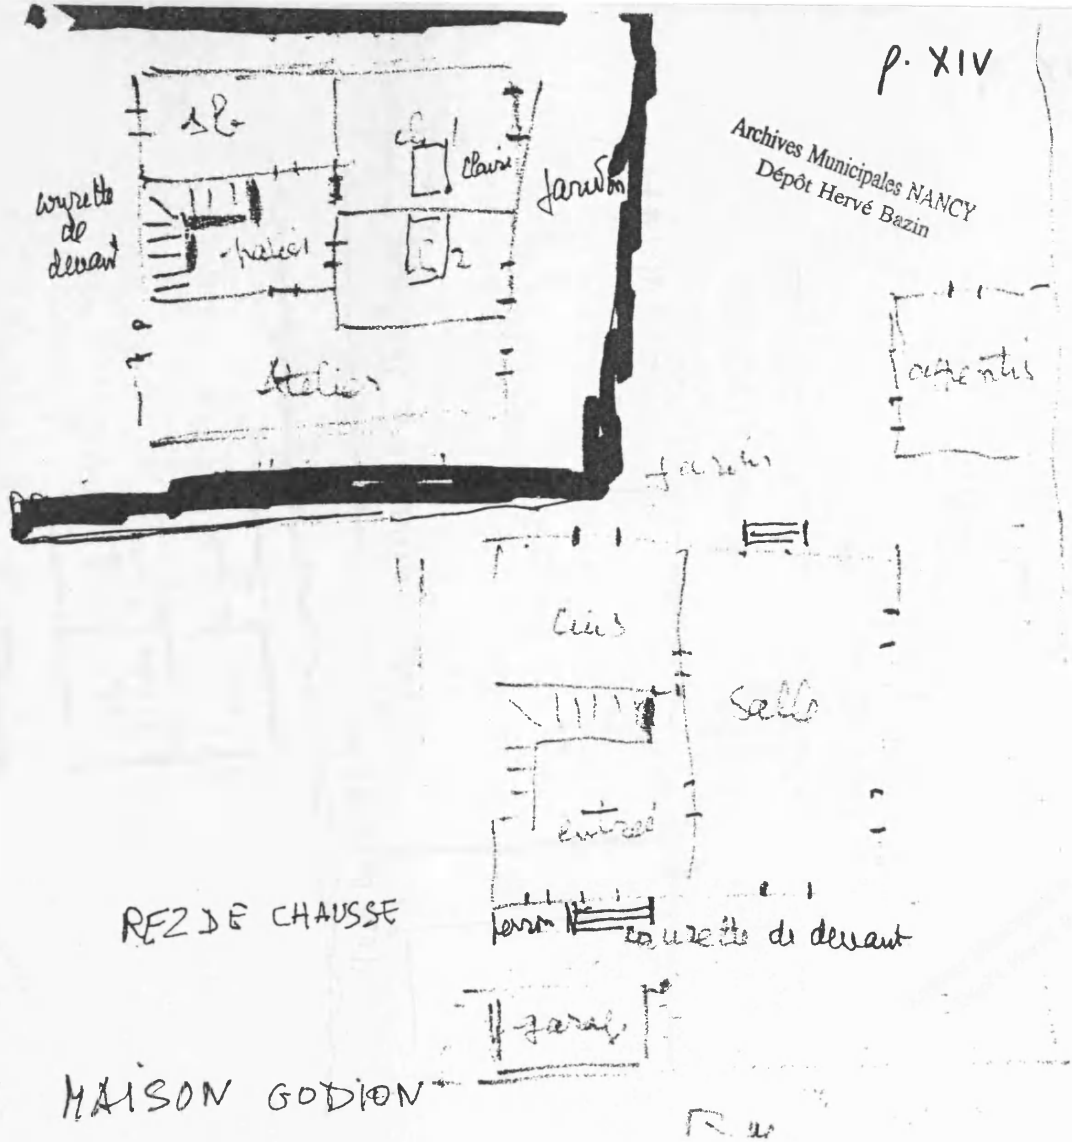 p. XIV
Archives Municipales NANCY
Dépôt Hervé Bazin
courette
de
devant
palier
ch 1
claire
2
Atelier
appentis
jardin
cuis
Salle
entrée
REZ DE CHAUSSE
perron
courette de devant
garage
MAISON GODION
Rue